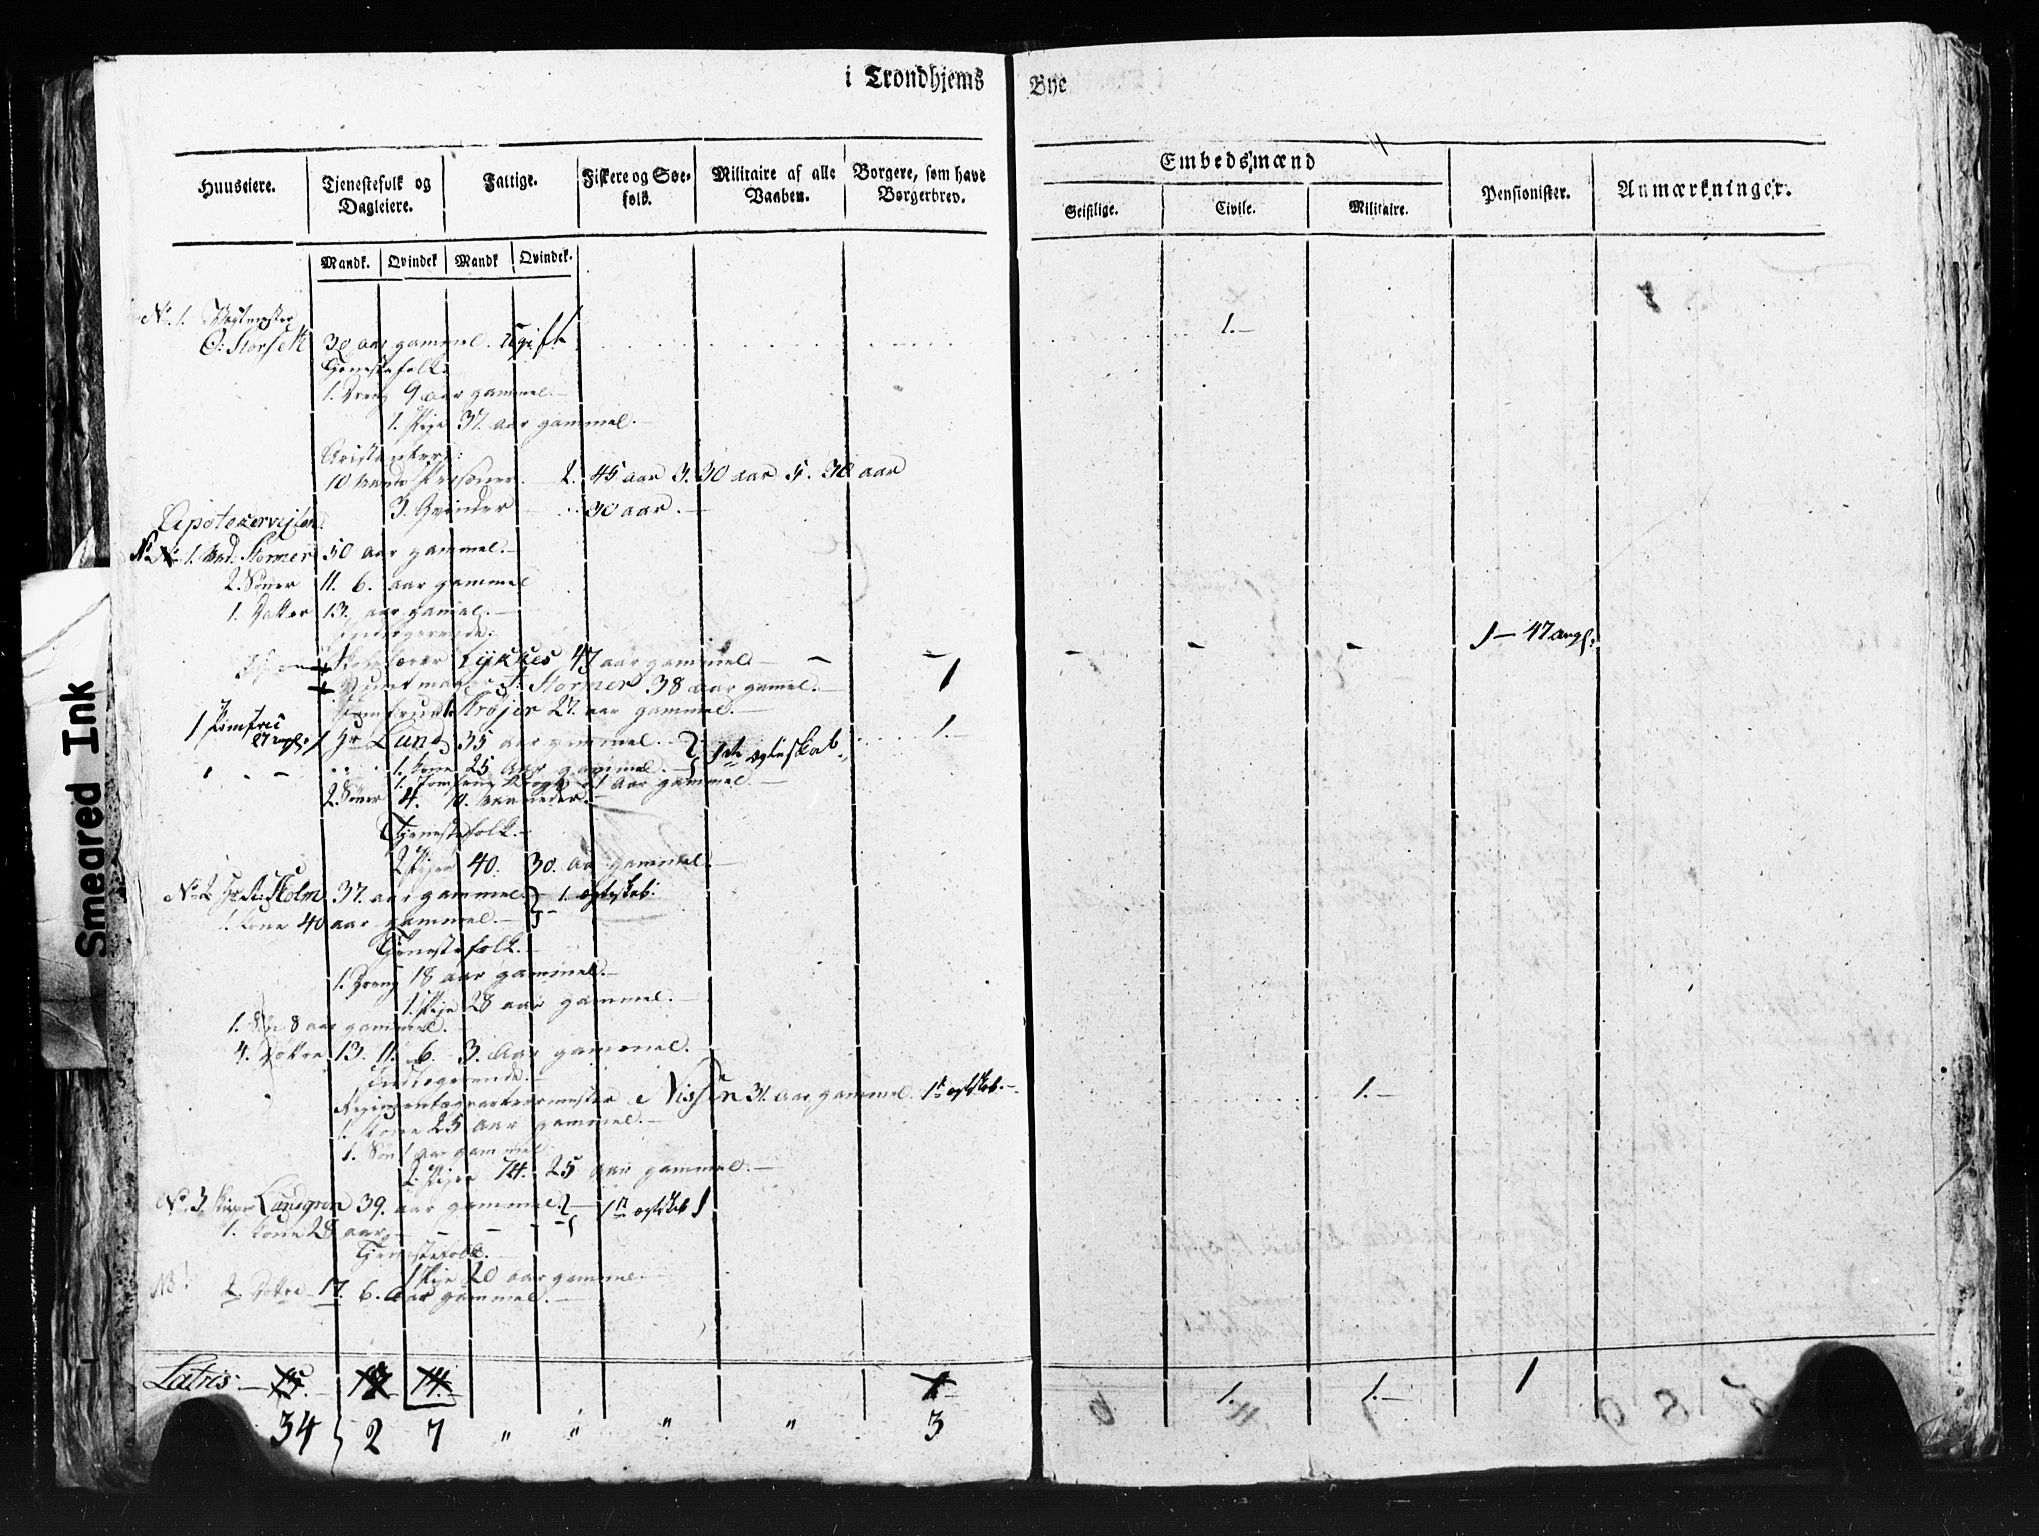 i Trondhjems Bye
Huuseiere. Tjenestefolk og Dagleiere. Fattige. Fiskere og Søefolk. Militaire af alle Vaaben. Borgere, som have Borgerbrev. Embedsmænd Pensionister. Anmærkninger.
Geistlige. Civile. Militaire.
Mandk. Qvindek Mandk Qvindek.
No. 1.
O: Storseth 30 aar gammel. Ugift 1.—
Tjenestefolk.
1. Dreng 9 aar gammel.—
1. Pige 37. aar gammel.—
Aristanter:
10 Mands Personer. 2. 45 aar 3. 30 aar 5. 30 aar
3. Qvinder 30 aar.—
No 1. Mad. Stormer 50 aar gammel.—
2. Sønner 11. 6. aar gammel
1. Datter 13. aar gamel.—
Inderoerende:
Lykkes 47 aar gammel.— 1— 47 angl:
Stormer 38 aar gamel.— 1
Jomfrue Krøjer 27. aar gammel.—
1 Jomfrue 27 angl: 1 Hr Lund 35 aar gammel. 1ste ægteskab. 1.—
1. Kone 25 aar gammel.—
1. Jomfrue 21 aar gammel—
2. Sønner 4. 10. Maaneder.—
Tjenestefolk.—
2 Piger 40. 30. aar gammel.—
No 2 Holm 37. aar gammel 1. ægteskab.
1. Kone 40 aar gammel.—
Tjenestefolk.—
1. Dreng 18 aar gammel.—
1. Pige 28 aar gammel.—
1. Søn 8 aar gammel.
4. Døttre 13. 11. 6. 3. aar gammel.
Inderoerende.—
Regimentsqvarteermester Nissen 31. aar gammel. 1te ægteskab.— 1.—
1. Kone 25 aar gammel.—
1. Søn 1 aar gammel
2. Piger 74. 25 aar gammel.—
No. 3. Landgren 39. aar gammel.— 1te ægteskab 1
1. Kone 28 aar.—
Tjenestefolk.—
1 Pige 20 aar gammel.—
NB! 2. Døttre 17. 6. aar gammel.—
Latris. 15. 14. 1 1. 1.— 1
34 2 7 " " " " 3
Smeared Ink